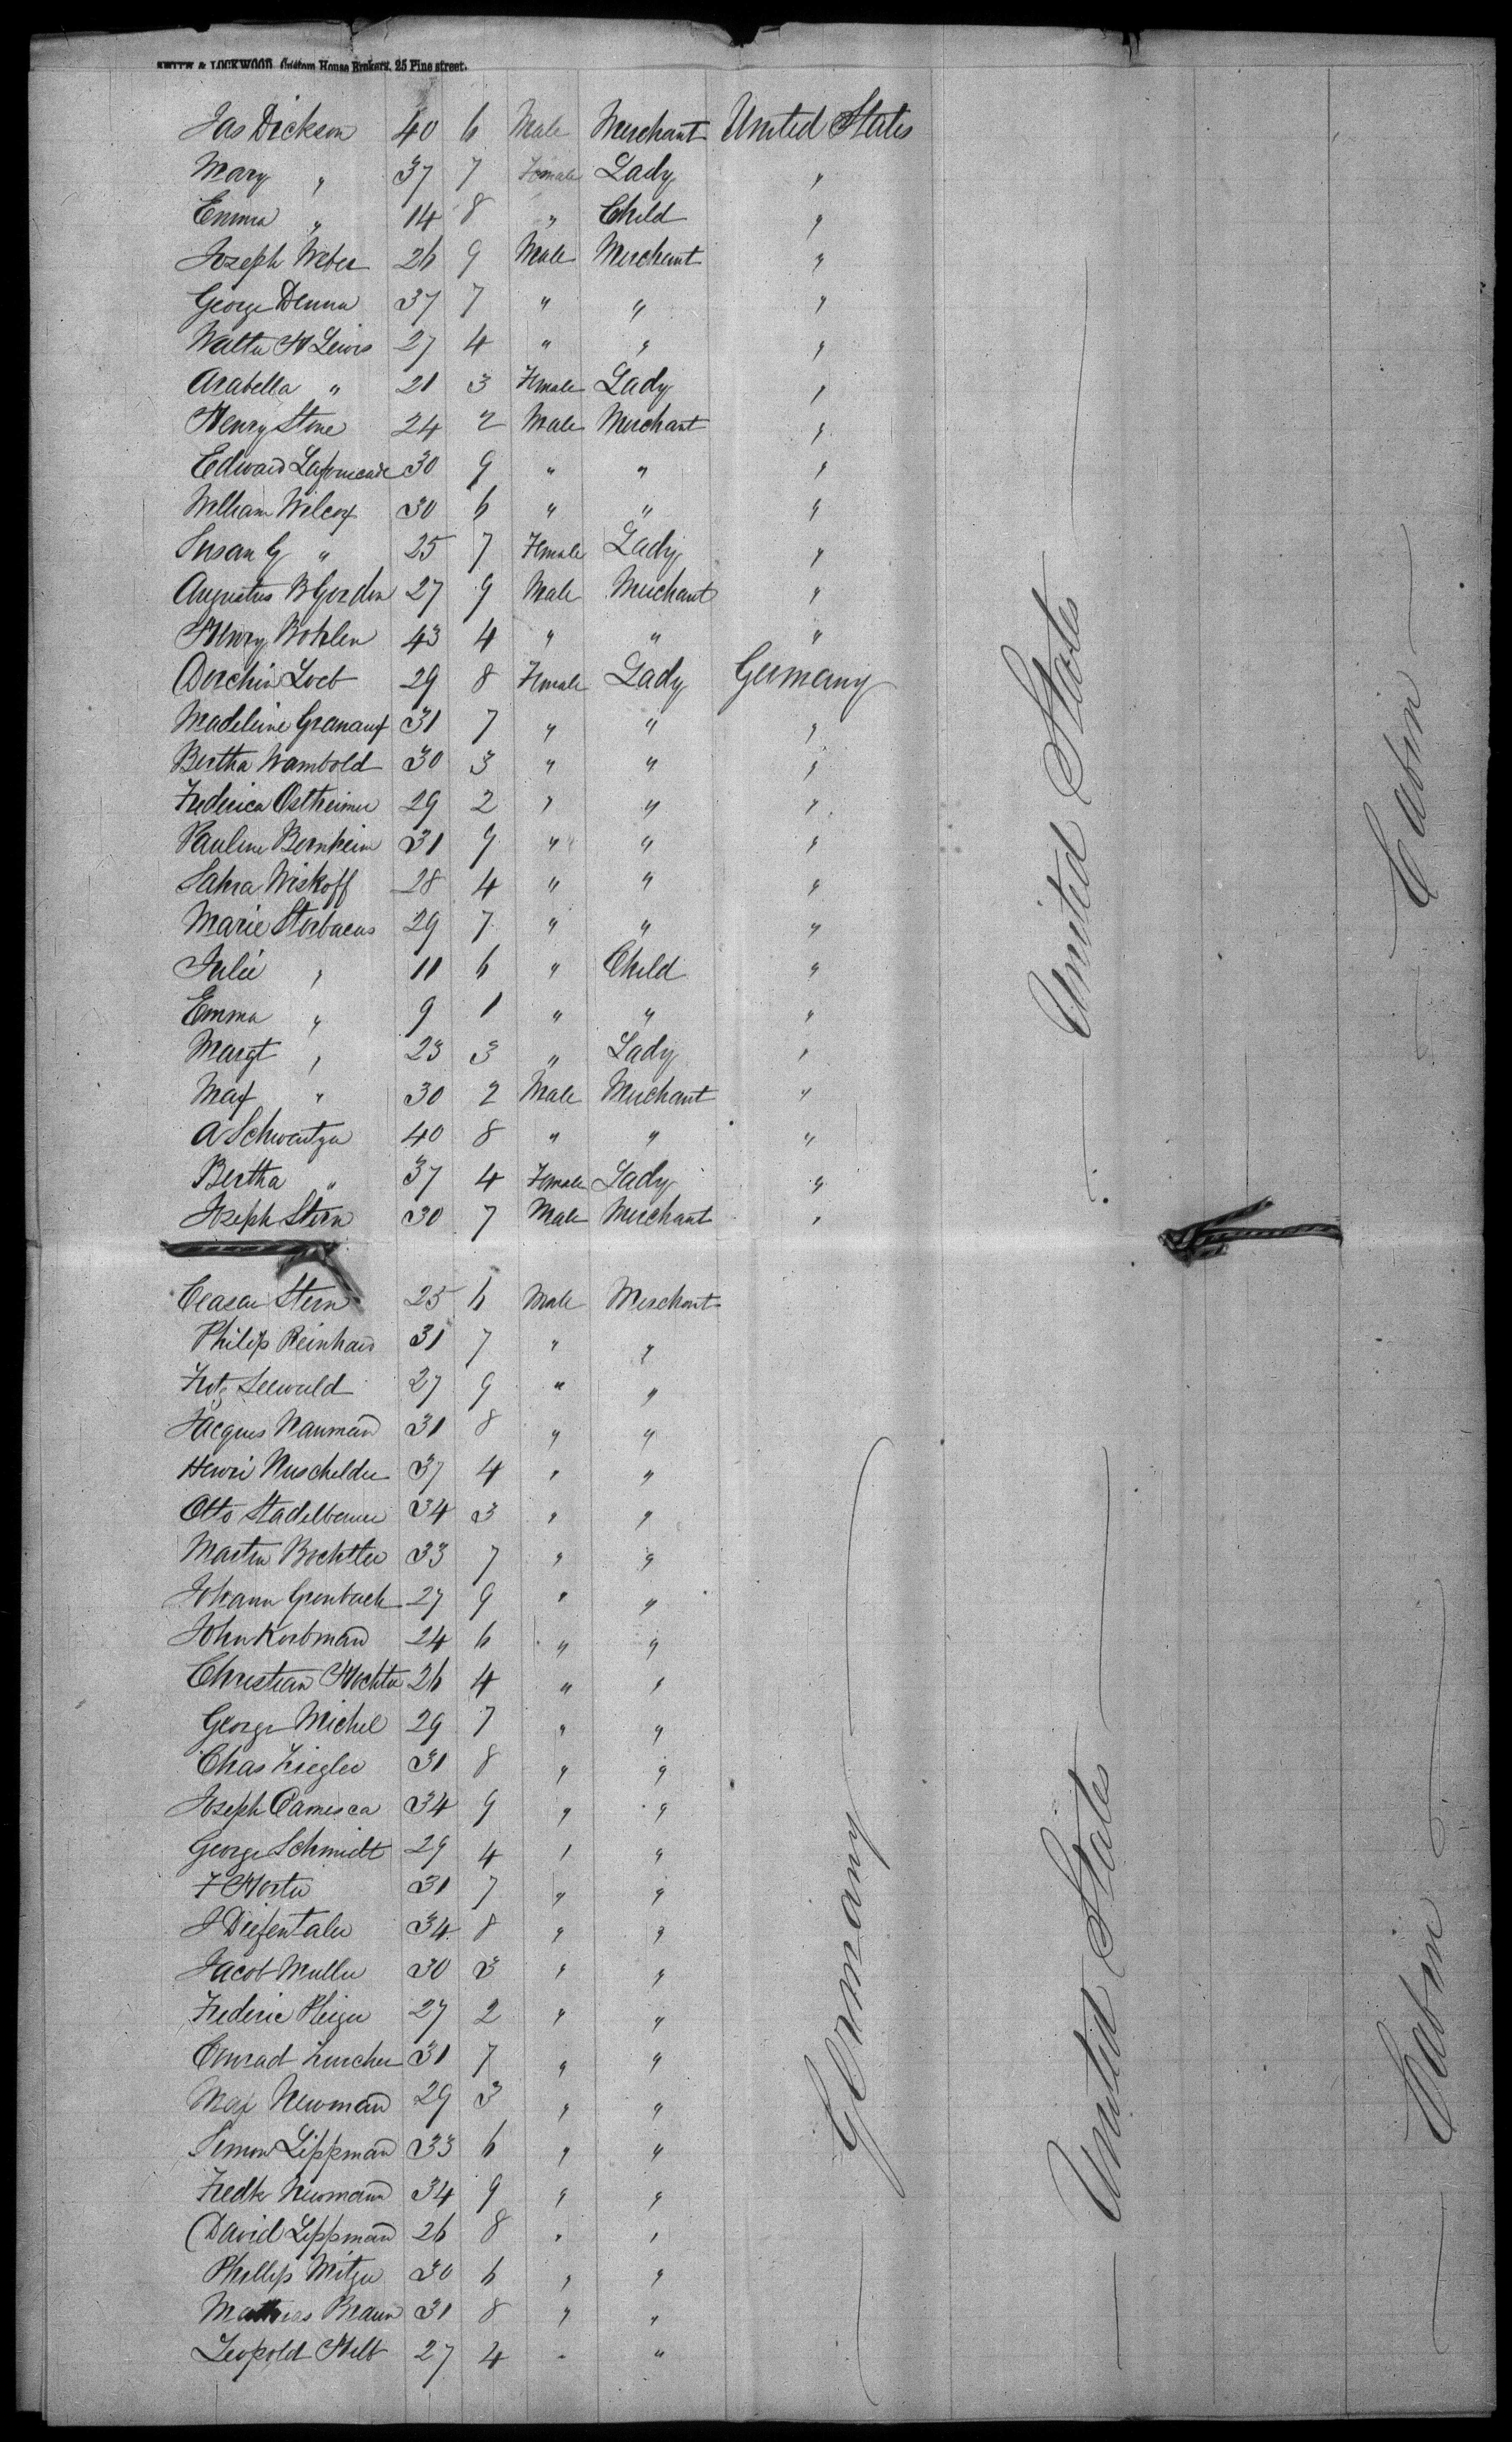 SMITH & LOCKWOOD, Custom House Brokers, 25 Pine street.
Jas Dickson 40 6 Male Merchant United States
Mary " 37 7 Female Lady "
Emma " 14 8 " Child "
Joseph Weber 26 9 Male Merchant "
George Denna 37 7 " " "
Walter H Lewis 27 4 " " "
Arabella " 21 3 Female Lady "
Henry Stone 24 2 Male Merchant "
Edward 30 9 " " "
William Wilcox 30 6 " " "
Susan G " 25 7 Female Lady "
Augustus B Gordon 27 9 Male Merchant "
Henry Bohlen 43 4 " " "
Loeb 29 8 Female Lady Germany
Madeleine 31 7 " " "
Bertha Wambold 30 3 " " "
Frederica Ostheimer 29 2 " " "
Pauline Bernheim 31 9 " " "
Sahra Wiskoff 28 4 " " "
Marie Storbacus 29 7 " " "
Julie " 11 6 " Child "
Emma " 9 1 " " "
Margt " 23 3 " Lady "
Max " 30 2 Male Merchant "
A Schwartzer 40 8 " " "
Bertha " 37 4 Female Lady "
Joseph Stern 30 7 Male Merchant "
United States
Cabin
Ceasar Stern 25 6 Male Merchant
Philip Reinhard 31 7 " "
Fritz Seewald 27 9 " "
Jacques Nauman 31 8 " "
Henri 37 4 " "
Otto Stadelbauer 34 3 " "
Martin Bochtler 33 7 " "
Johann Gronbach 27 9 " "
John Korbman 24 6 " "
Christian 26 4 " "
George Michel 29 7 " "
Chas Ziegler 31 8 " "
Joseph Camesca 34 9 " "
George Schmidt 29 4 " "
F Horter 31 7 " "
J Diefentaler 34 8 " "
Jacob Muller 30 3 " "
Frederic 27 2 " "
Conrad Zurcher 31 7 " "
Max Newman 29 3 " "
Simon Lippman 33 6 " "
Fredk Newmann 34 9 " "
David Lippman 26 8 " "
Phillip Mitzer 30 6 " "
Mathies Braun 31 8 " "
Leopold Helb 27 4 " "
Germany
United States
Cabin